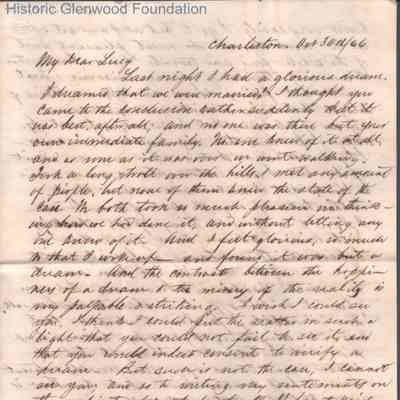 Historic Glenwood Foundation
Charleston. Oct 30th/66
My Dear Lucy
Last night I had a glorious dream.
I dreamed that we were married. I thought you
came to the conclusion rather suddenly that it
was best, after all, and no one was there but your
own immediate family. No one knew of it at all,
and as soon as it was over we went walking,
took a long stroll over the hills, I met any amount
of people, but none of them knew the state of the
case. We both took so much pleasure in think-
ing how we had done it, and without letting any
one know of it. And I felt glorious, so much
so that I woke up and found it was but a
dream. And the contrast between the happi-
ness of a dream & the misery of the reality is
very palpable & striking. I wish I could see
you. I think I could put the matter in such a
light that you could not fail to see it, and
that you would indeed consent to verify a
dream. But such is not the case, I cannot
see you, and so to writing my sentiments on